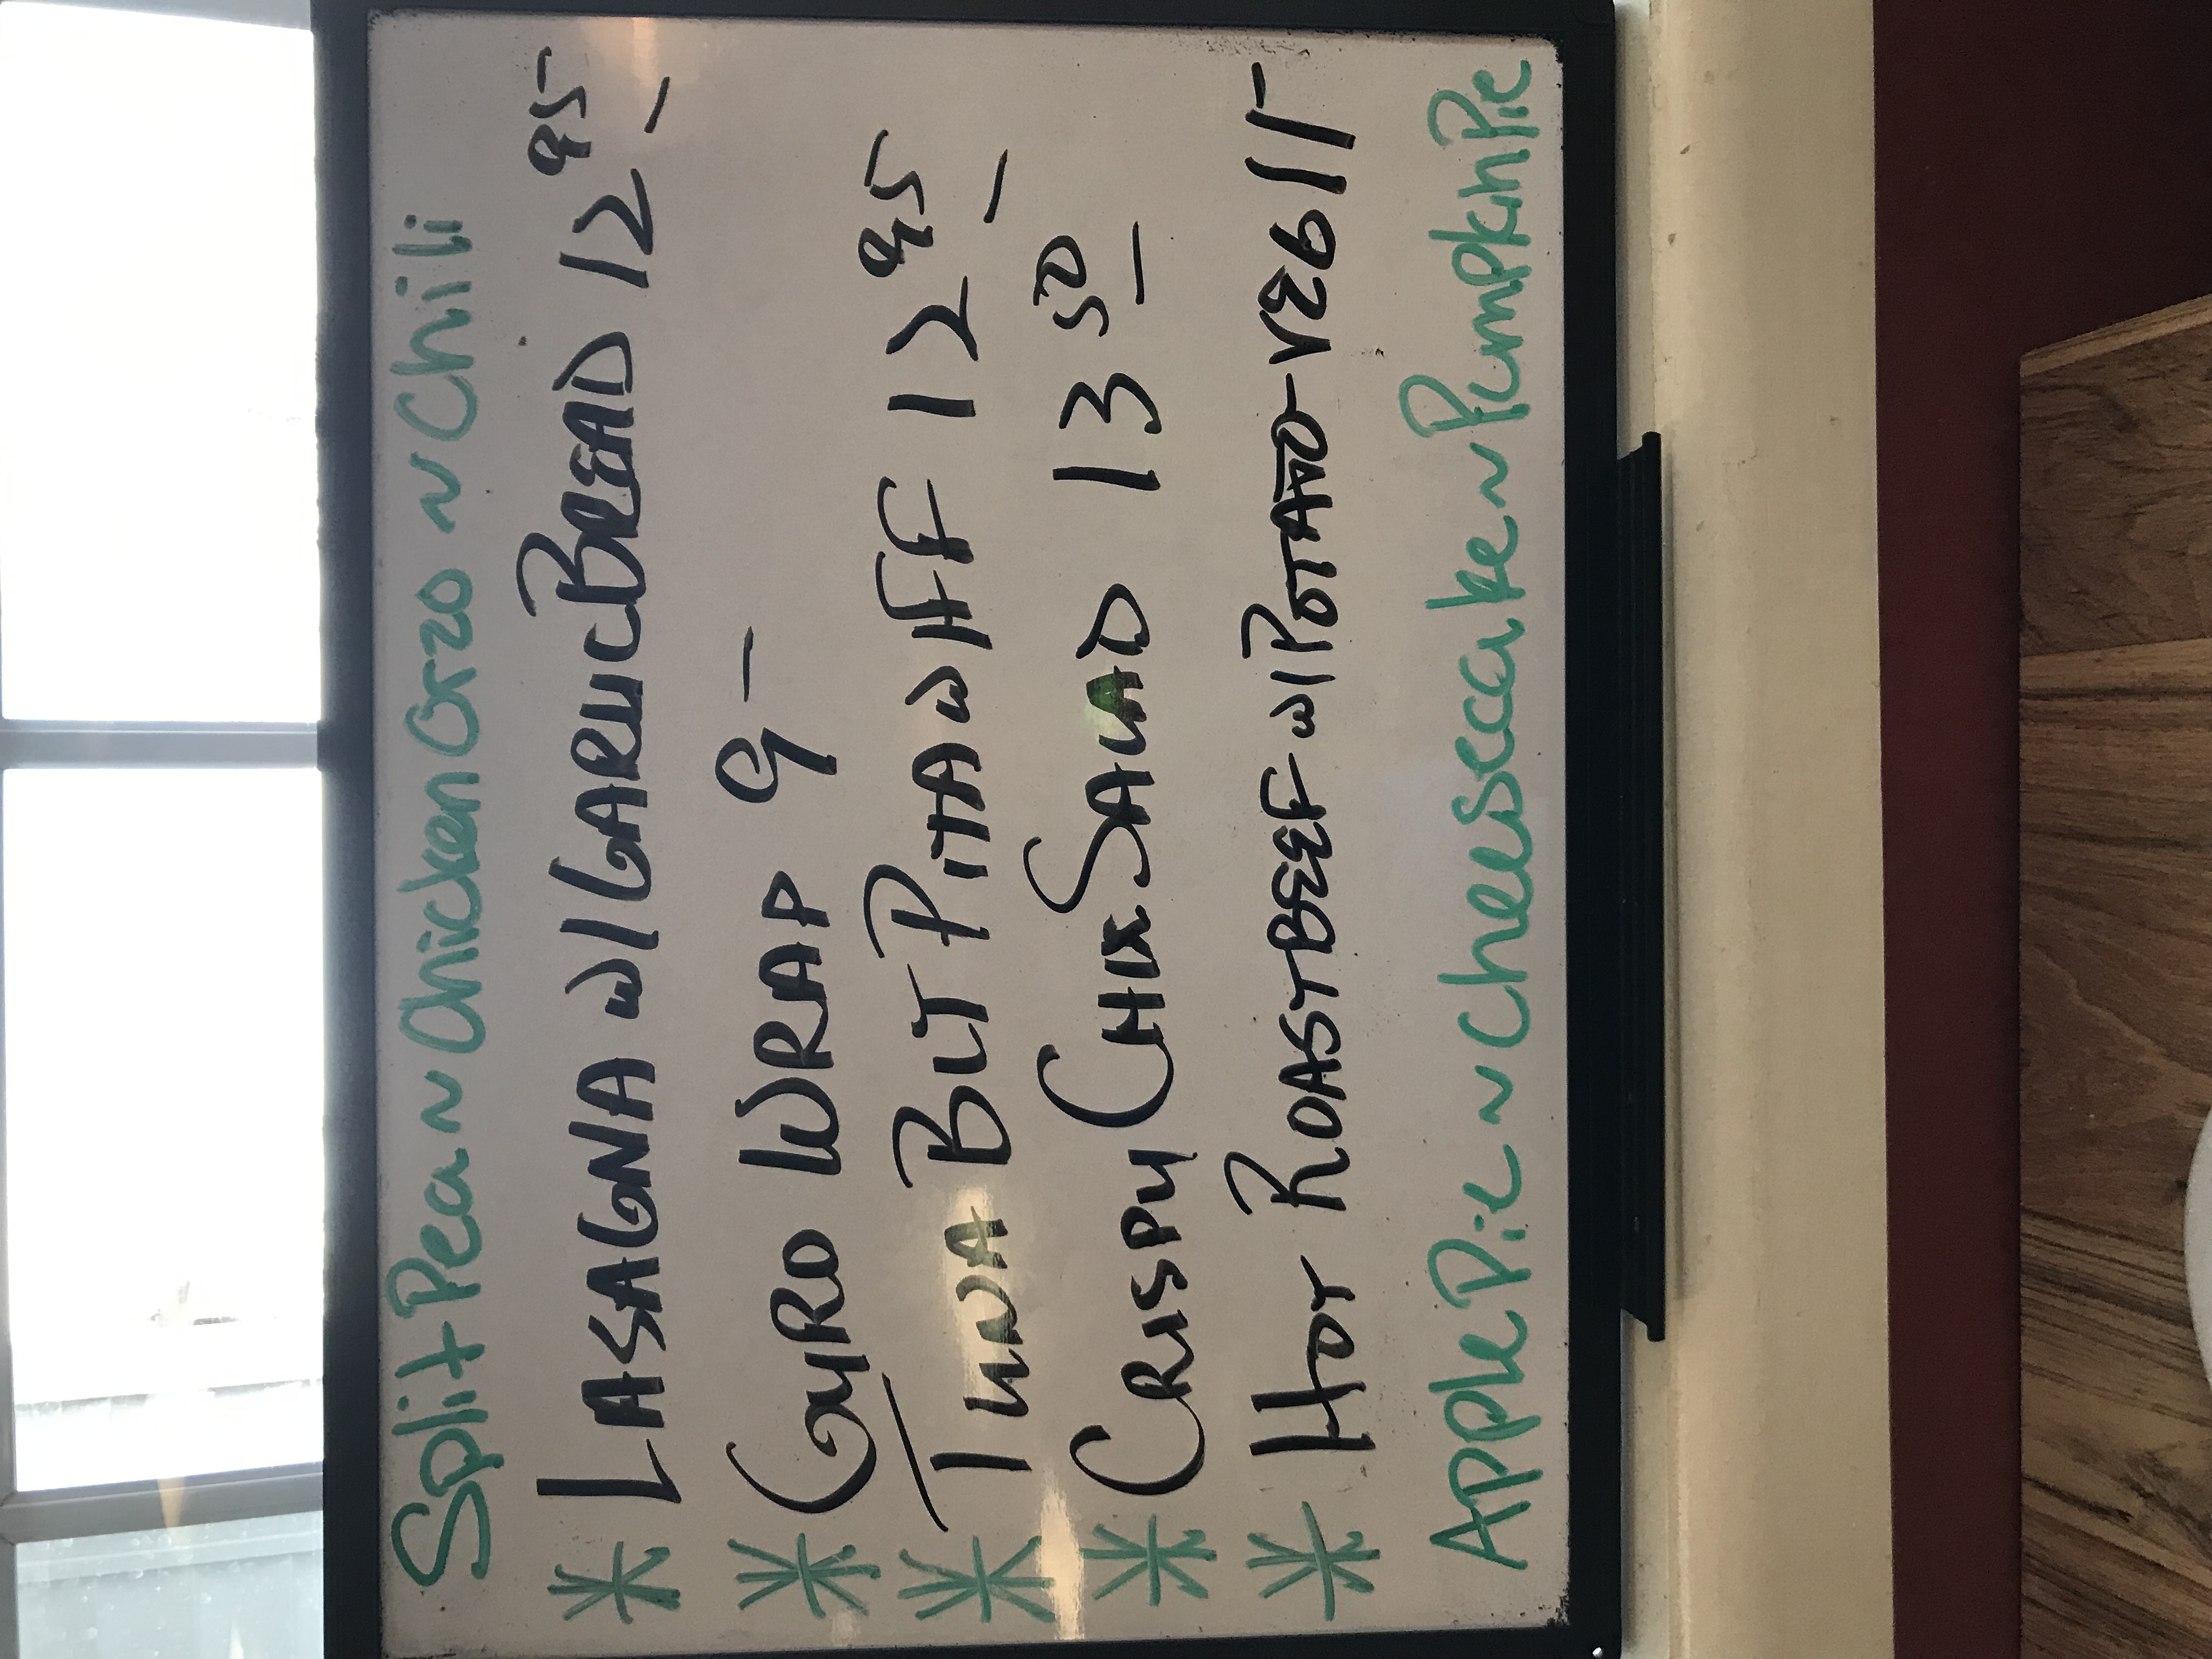 Split Pea ~ Chicken Orzo ~ Chili
* LASAGNA w/ GARLIC BREAD 12 95
* GYRO WRAP 9 -
* TUNA BLT PITA w FF 12 95
* CRISPY CHIX SALAD 13 50
* HOT ROAST BEEF w/ POTATO - VEG 11 -
Apple Pie ~ Cheesecake ~ Pumpkin Pie